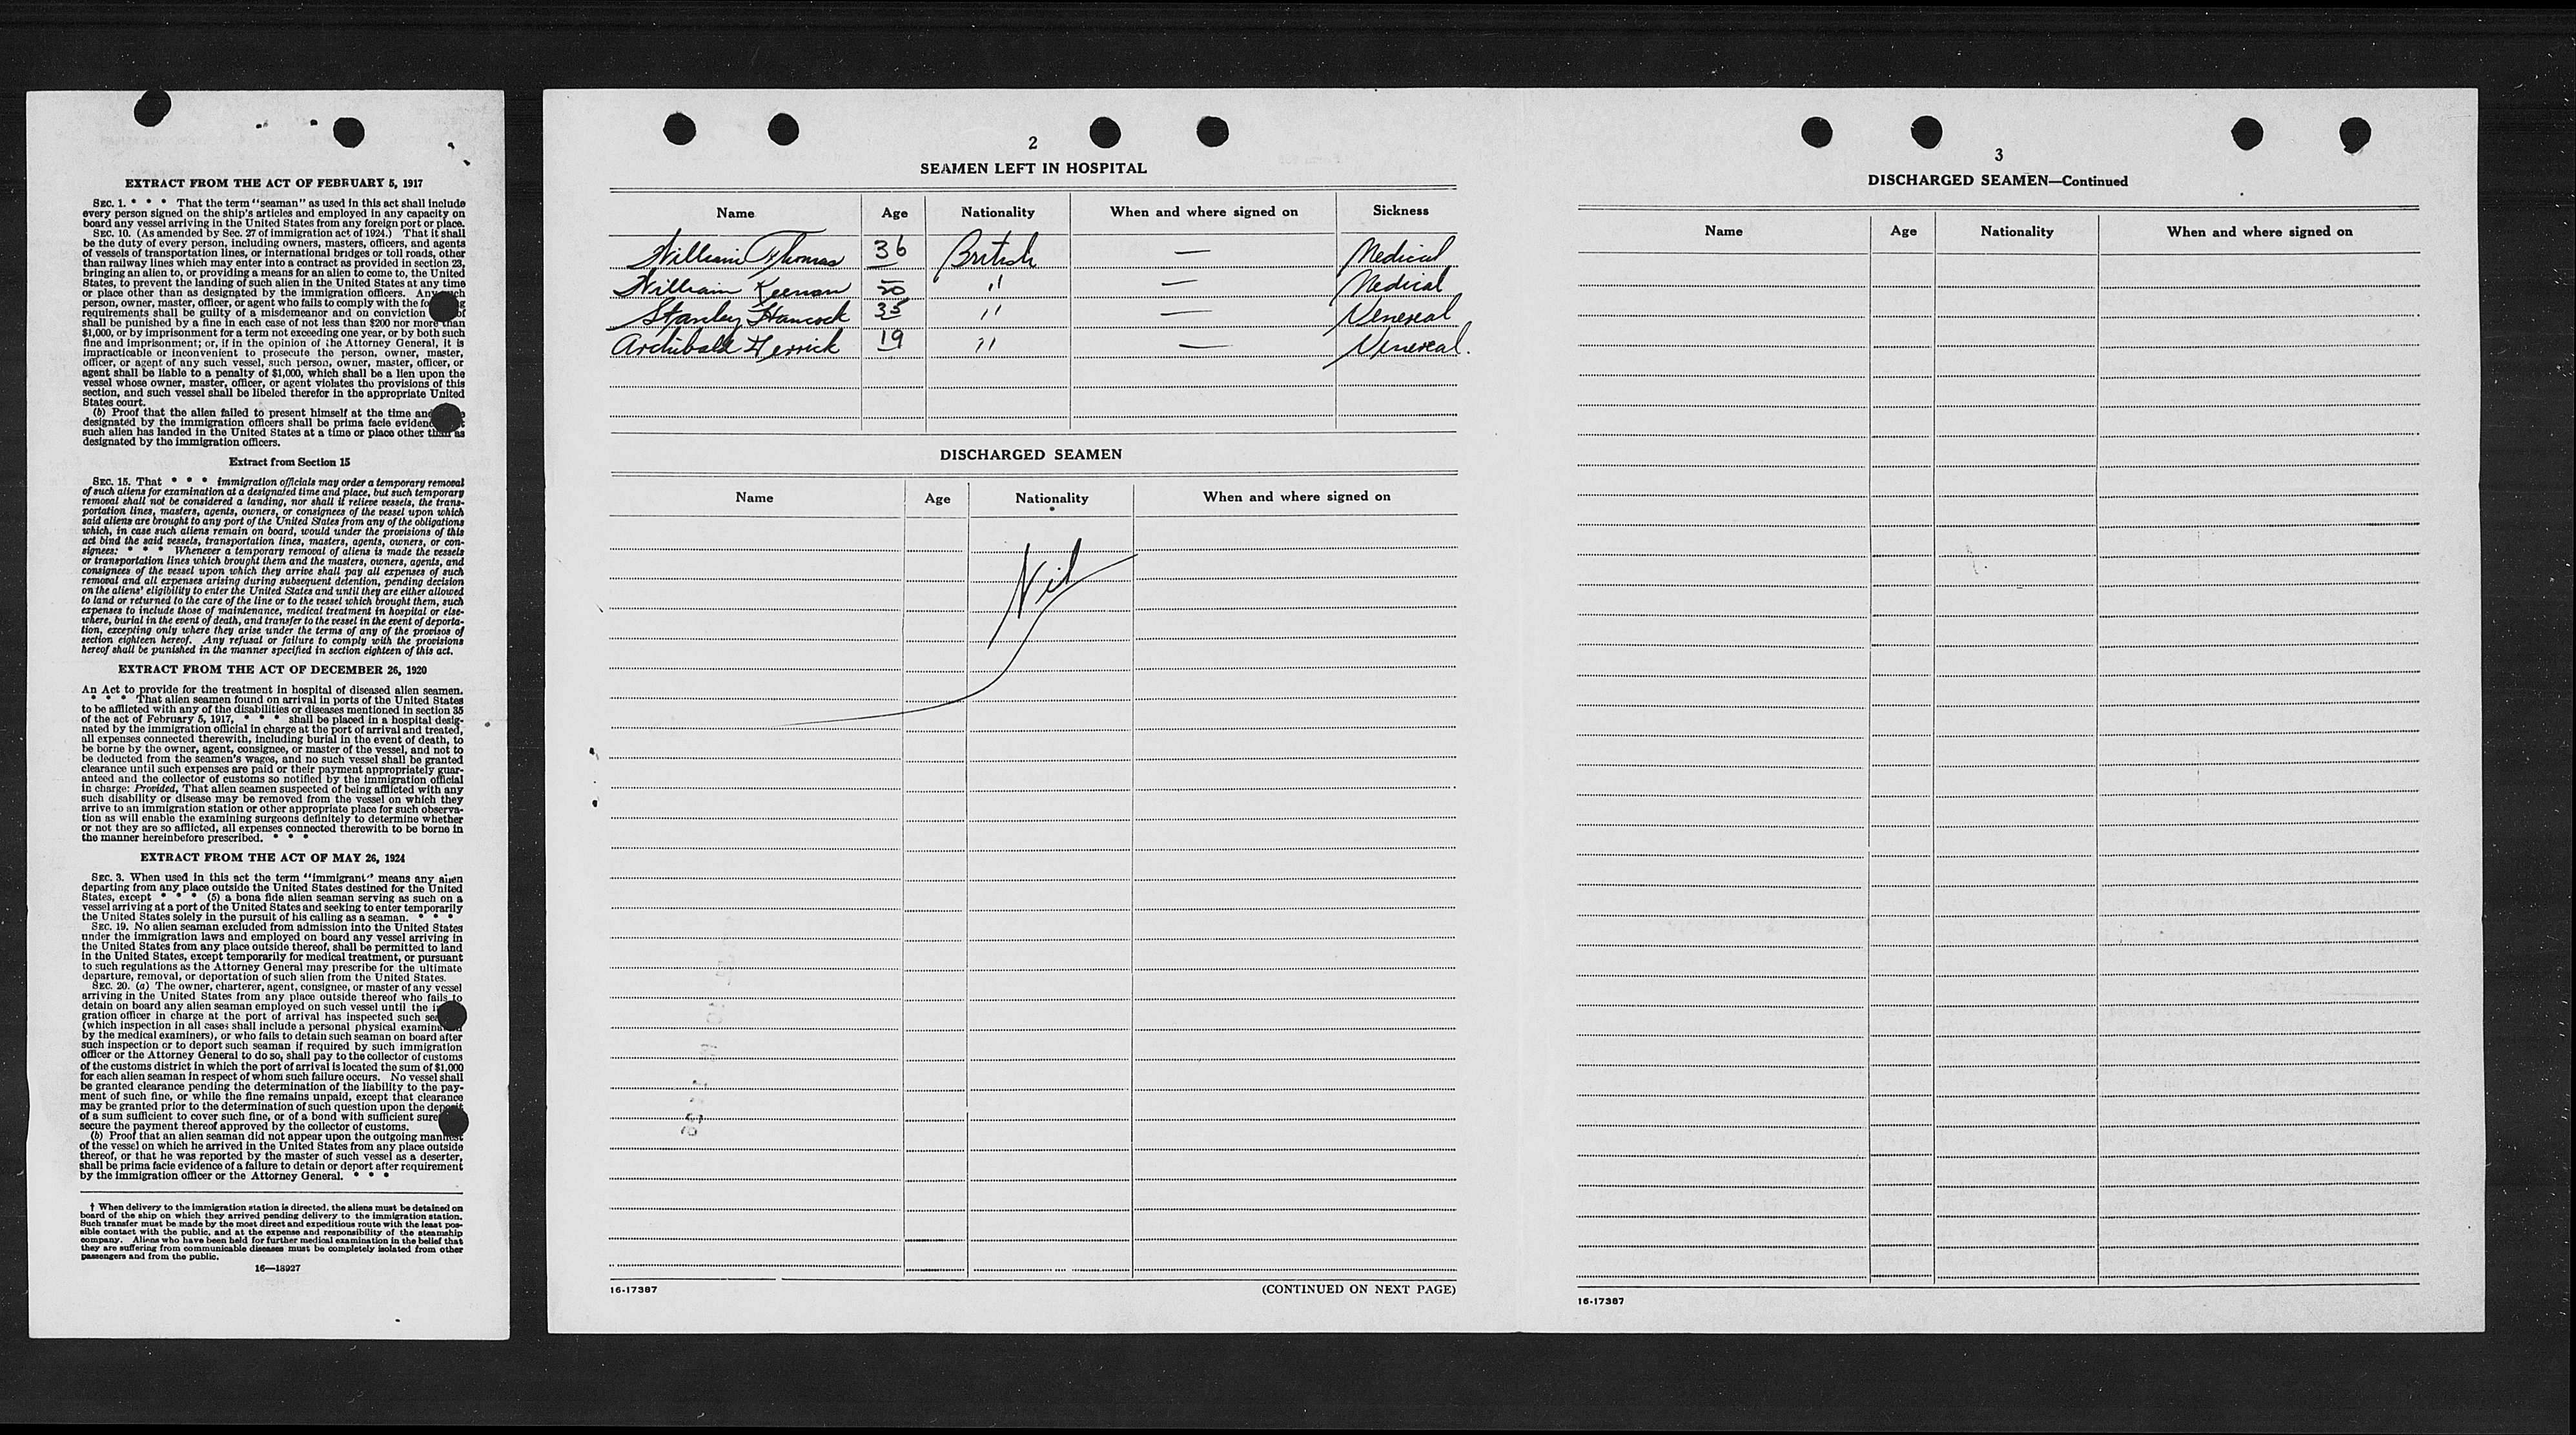 EXTRACT FROM THE ACT OF FEBRUARY 5, 1917
SEC. 1. * * * That the term "seaman" as used in this act shall include
every person signed on the ship's articles and employed in any capacity on
board any vessel arriving in the United States from any foreign port or place.
SEC. 10. (As amended by Sec. 27 of immigration act of 1924.) That it shall
be the duty of every person, including owners, masters, officers, and agents
of vessels of transportation lines, or international bridges or toll roads, other
than railway lines which may enter into a contract as provided in section 23,
bringing an alien to, or providing a means for an alien to come to, the United
States, to prevent the landing of such alien in the United States at any time
or place other than as designated by the immigration officers. Any such
person, owner, master, officer, or agent who fails to comply with the
requirements shall be guilty of a misdemeanor and on conviction
shall be punished by a fine in each case of not less than $200 nor more than
$1,000, or by imprisonment for a term not exceeding one year, or by both such
fine and imprisonment; or, if in the opinion of the Attorney General, it is
impracticable or inconvenient to prosecute the person, owner, master,
officer, or agent of any such vessel, such person, owner, master, officer, or
agent shall be liable to a penalty of $1,000, which shall be a lien upon the
vessel whose owner, master, officer, or agent violates the provisions of this
section, and such vessel shall be libeled therefor in the appropriate United
States court.
(b) Proof that the alien failed to present himself at the time and
designated by the immigration officers shall be prima facie
such alien has landed in the United States at a time or place other than as
designated by the immigration officers.
Extract from Section 15
SEC. 15. That * * * immigration officials may order a temporary removal
of such aliens for examination at a designated time and place, but such temporary
removal shall not be considered a landing, nor shall it relieve vessels, the trans-
portation lines, masters, agents, owners, or consignees of the vessel upon which
said aliens are brought to any port of the United States from any of the obligations
which, in case such aliens remain on board, would under the provisions of this
act bind the said vessels, transportation lines, masters, agents, owners, or con-
signees: * * * Whenever a temporary removal of aliens is made the vessels
or transportation lines which brought them and the masters, owners, agents, and
consignees of the vessel upon which they arrive shall pay all expenses of such
removal and all expenses arising during subsequent detention, pending decision
on the aliens' eligibility to enter the United States and until they are either allowed
to land or returned to the care of the line or to the vessel which brought them, such
expenses to include those of maintenance, medical treatment in hospital or else-
where, burial in the event of death, and transfer to the vessel in the event of deporta-
tion, excepting only where they arise under the terms of any of the provisos of
section eighteen hereof. Any refusal or failure to comply with the provisions
hereof shall be punished in the manner specified in section eighteen of this act.
EXTRACT FROM THE ACT OF DECEMBER 26, 1920
An Act to provide for the treatment in hospital of diseased alien seamen.
* * * That alien seamen found on arrival in ports of the United States
to be afflicted with any of the disabilities or diseases mentioned in section 35
of the act of February 5, 1917, * * * shall be placed in a hospital desig-
nated by the immigration official in charge at the port of arrival and treated,
all expenses connected therewith, including burial in the event of death, to
be borne by the owner, agent, consignee, or master of the vessel, and not to
be deducted from the seamen's wages, and no such vessel shall be granted
clearance until such expenses are paid or their payment appropriately guar-
anteed and the collector of customs so notified by the immigration official
in charge: Provided, That alien seamen suspected of being afflicted with any
such disability or disease may be removed from the vessel on which they
arrive to an immigration station or other appropriate place for such observa-
tion as will enable the examining surgeons definitely to determine whether
or not they are so afflicted, all expenses connected therewith to be borne in
the manner hereinbefore prescribed. * * *
EXTRACT FROM THE ACT OF MAY 26, 1924
SEC. 3. When used in this act the term "immigrant" means any alien
departing from any place outside the United States destined for the United
States, except * * * (5) a bona fide alien seaman serving as such on a
vessel arriving at a port of the United States and seeking to enter temporarily
the United States solely in the pursuit of his calling as a seaman. * * *
SEC. 19. No alien seaman excluded from admission into the United States
under the immigration laws and employed on board any vessel arriving in
the United States from any place outside thereof, shall be permitted to land
in the United States, except temporarily for medical treatment, or pursuant
to such regulations as the Attorney General may prescribe for the ultimate
departure, removal, or deportation of such alien from the United States.
SEC. 20. (a) The owner, charterer, agent, consignee, or master of any vessel
arriving in the United States from any place outside thereof who fails to
detain on board any alien seaman employed on such vessel until the
gration officer in charge at the port of arrival has inspected such
(which inspection in all cases shall include a personal physical
by the medical examiners), or who fails to detain such seaman on board after
such inspection or to deport such seaman if required by such immigration
officer or the Attorney General to do so, shall pay to the collector of customs
of the customs district in which the port of arrival is located the sum of $1,000
for each alien seaman in respect of whom such failure occurs. No vessel shall
be granted clearance pending the determination of the liability to the pay-
ment of such fine, or while the fine remains unpaid, except that clearance
may be granted prior to the determination of such question upon the deposit
of a sum sufficient to cover such fine, or of a bond with sufficient
secure the payment thereof approved by the collector of customs.
(b) Proof that an alien seaman did not appear upon the outgoing manifest
of the vessel on which he arrived in the United States from any place outside
thereof, or that he was reported by the master of such vessel as a deserter,
shall be prima facie evidence of a failure to detain or deport after requirement
by the immigration officer or the Attorney General. * * *
† When delivery to the immigration station is directed, the aliens must be detained on
board of the ship on which they arrived pending delivery to the immigration station.
Such transfer must be made by the most direct and expeditious route with the least pos-
sible contact with the public, and at the expense and responsibility of the steamship
company. Aliens who have been held for further medical examination in the belief that
they are suffering from communicable diseases must be completely isolated from other
passengers and from the public.
16—18927
2
SEAMEN LEFT IN HOSPITAL
Name Age Nationality When and where signed on Sickness
William Thomas 36 British — Medical
William Keenan 50 " — Medical
Stanley Hancock 35 " — Venereal
Archibald Herrick 19 " — Venereal.
DISCHARGED SEAMEN
Name Age Nationality When and where signed on
Nil
16-17387 (CONTINUED ON NEXT PAGE)
3
DISCHARGED SEAMEN—Continued
Name Age Nationality When and where signed on
16-17387